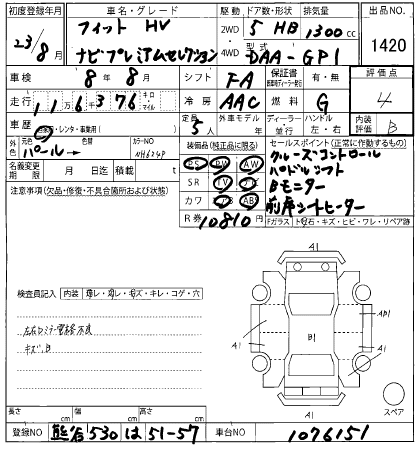 初度登録年月 車名・グレード 駆動 ドア数・形状 排気量 出品NO.
23/8月 フィット HV 2WD 5 HB 1300cc 1420
ナビプレミアムセレクション 4WD 型式 DAA-GP1
車検 8年8月 シフト FA 保証書 有・無 評価点
走行 11万6千376 キロ マイル 冷房 AAC 燃料 G 4
車歴 自家用・レンタ・事業用( ) 定員 5人 外車モデル 年 ディーラー 並行 ハンドル 左・右 内装評価 B
外色 元色 パール→ 色替 カラーNO NH624P 装備品(純正品に限る) セールスポイント(正常に作動するもの)
名義変更期限 月 日迄 積載 t PS PW AW クルーズコントロール
注意事項(欠品・修復・不具合箇所および状態) SR TV ナビ パドルシフト
カワ エアB ABS Bモニター
R券 10810円 前席シートヒーター
Fガラス トビ石・キズ・ヒビ・ワレ・リペア跡
検査員記入 内装
キズ、B
A1
A1
A1
B1
AB1
A1
A1
スペア
長さ cm 幅 cm 高さ cm
登録NO 熊谷 530 は 51-57 車台NO 1076151